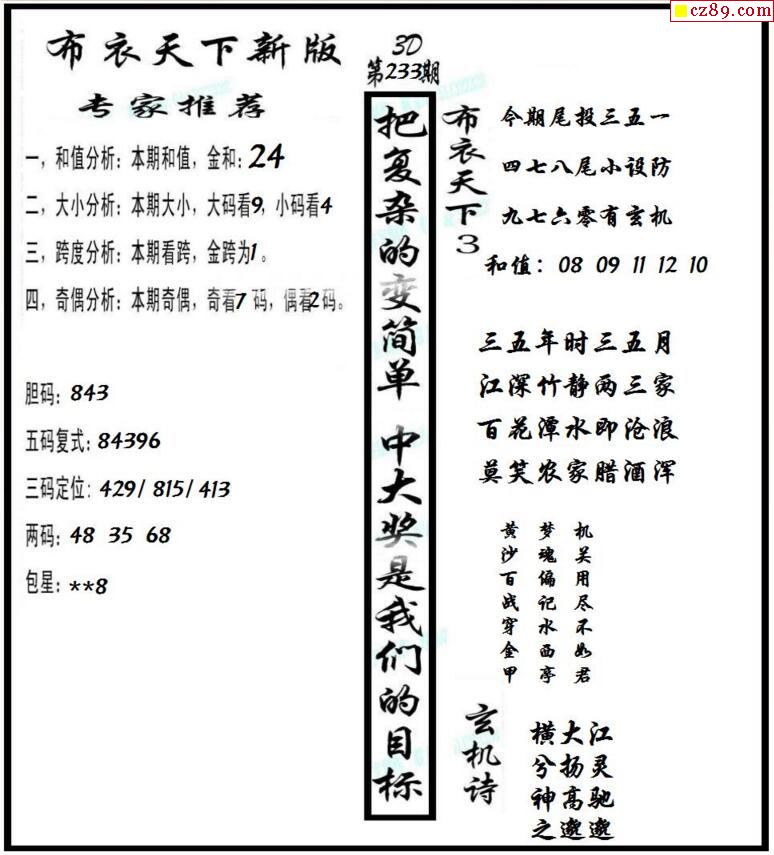 cz89.com
布衣天下新版
专家推荐
一，和值分析：本期和值，金和：24
二，大小分析：本期大小，大码看9，小码看4
三，跨度分析：本期看跨，金跨为1。
四，奇偶分析：本期奇偶，奇看7 码，偶看2码。
胆码：843
五码复式：84396
三码定位：429/ 815/ 413
两码：48 35 68
包星：**8
3D
第233期
把复杂的变简单 中大奖是我们的目标
布衣天下3
今期尾投三五一
四七八尾小设防
九七六零有玄机
和值：08 09 11 12 10
三五年时三五月
江深竹静两三家
百花潭水即沧浪
莫笑农家腊酒浑
黄沙百战穿金甲
梦魂偏记水西亭
机关用尽不如君
玄机诗
横大江
兮扬灵
神高驰
之邈邈